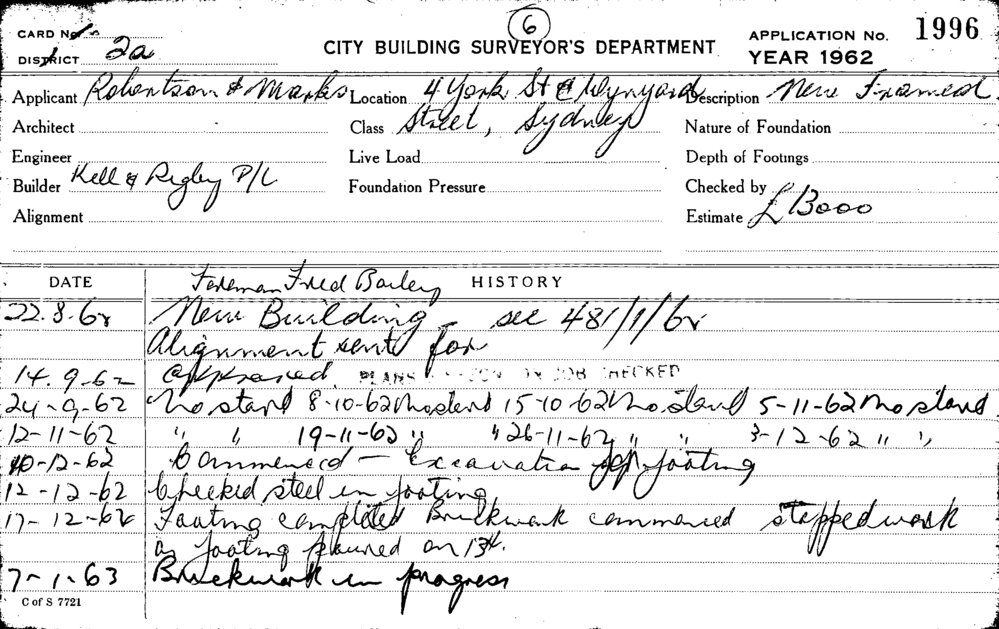 6
CARD No.
DISTRICT 2a
CITY BUILDING SURVEYOR'S DEPARTMENT
APPLICATION No. 1996
YEAR 1962
Applicant Robertson & Marks Location 4 York St & Wynyard Description New Framed
Architect Class Street, Sydney Nature of Foundation
Engineer Live Load Depth of Footings
Builder Kell & Rigby P/L Foundation Pressure Checked by
Alignment Estimate £13000
DATE Foreman Fred Bailey HISTORY
22.8.62 New Building - see 481/1/62
Alignment sent for
14.9.62 Approved PLANS JOB CHECKED
24-9-62 No start 8-10-62 No start 15-10-62 No start 5-11-62 No start
12-11-62 " " 19-11-62 " " 26-11-62 " " 3-12-62 " "
10-12-62 Commenced - Excavation for footing
12-12-62 Checked steel in footing
17-12-62 Footing completed Brickwork commenced stopped work
as footing poured on 13th.
7-1-63 Brickwork in progress
C of S 7721